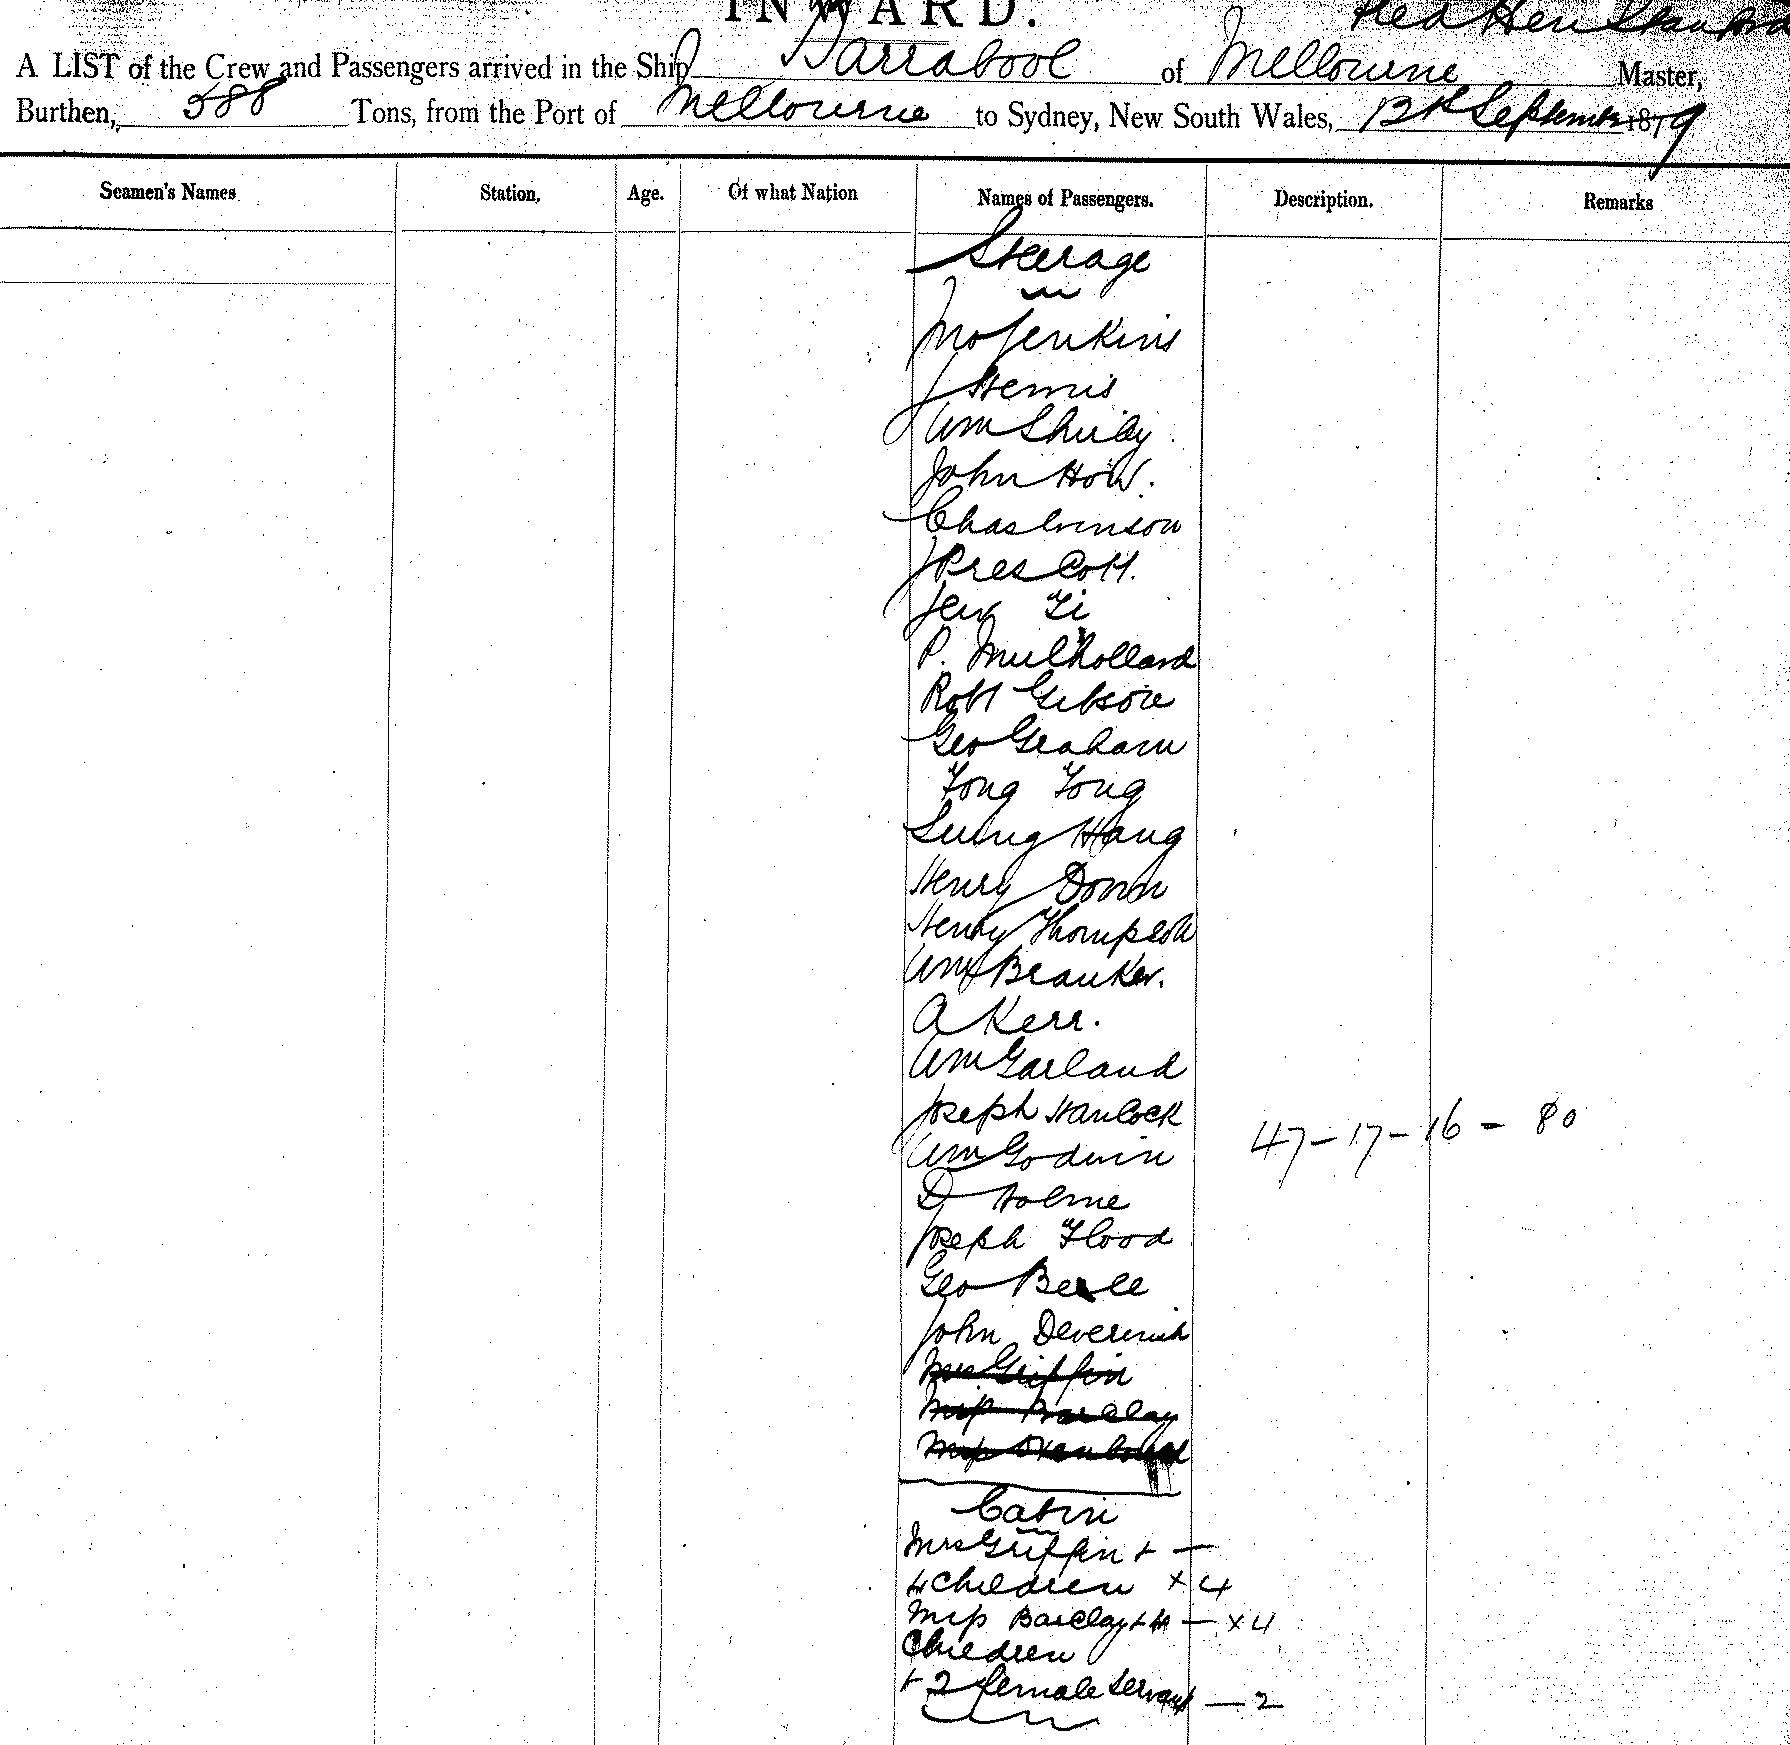 INWARD.
A LIST of the Crew and Passengers arrived in the Ship Barrabool of Melbourne Master,
Burthen, 588 Tons, from the Port of Melbourne to Sydney, New South Wales, 13th September 1879
Seamen's Names Station, Age. Of what Nation Names of Passengers. Description. Remarks
Steerage
Jno Jenkins
J
Wm
John How.
Chas
J Prescott.
P. Mulholland
Robt Gibson
Geo Graham
Fong Fong
Hang
Henry Down
Henry Thompson
Wm
A Kerr.
Wm Garland
Joseph Hancock
47-17-16-80
Wm Godwin
D Holme
Joseph Flood
Geo
John Deverenish
Mrs Griffin
Miss Barclay
Miss
Cabin
Mrs Griffin + —
4 Children × 4
Miss Barclay + 4 — × 4
Children
+ 2 female Servant — 2